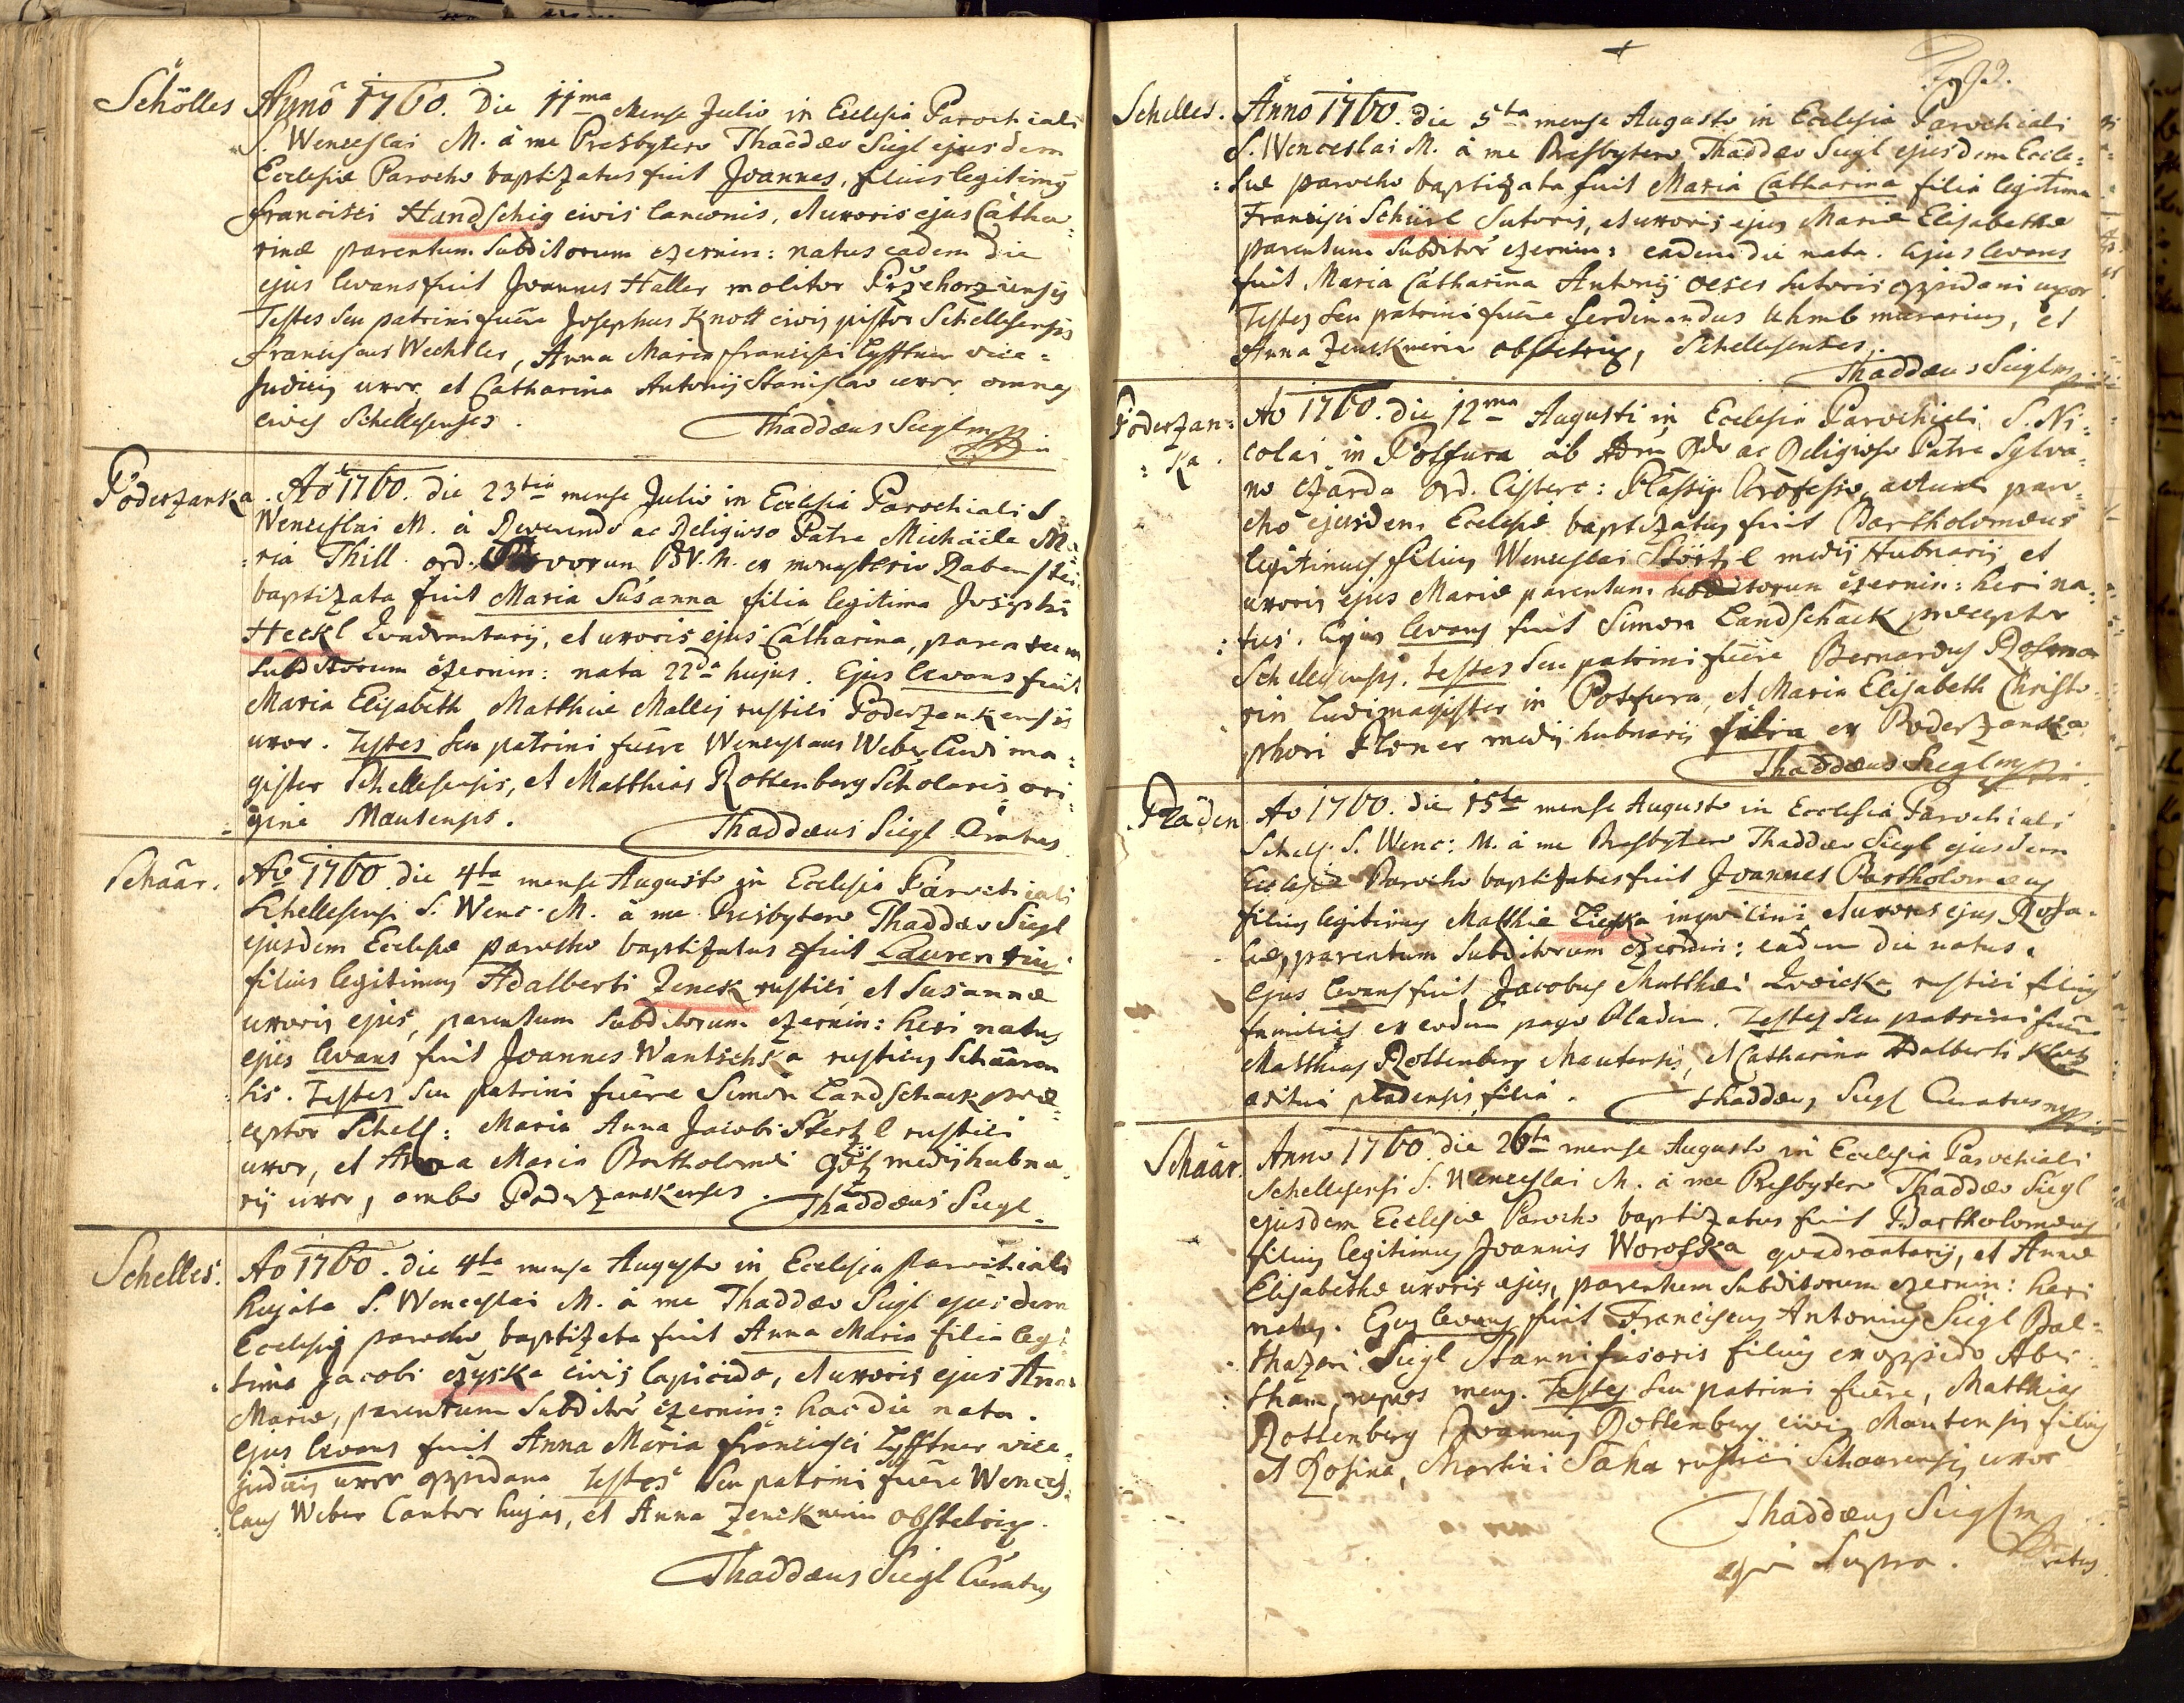 Schölles
Anno 1760. Die 11ma Mense Julio in Ecclesia Parochiali
S. Wenceslai M. à me Presbytero Thaddæo Siegl ejusdem
Ecclesiæ Parocho baptizatus fuit Joannes, filius legitimus
Francisci Handschig civis lanionis, et uxoris ejus Catha=
rinæ parentum Subditorum czernin: natus eadem die
ejus levans fuit Joannes Haller molitor Przehorziensis
Testes seu patrini fuêre Josephus Knott civis pistor Schellesensis
Franciscus Wechtler, Anna Maria Francisci Tyfftner vice=
Judicis uxor, et Catharina Antonij Stanislav uxor omnes
cives Schellesenses.
Thaddæus Siegl mpp
Poderzanka
Ao 1760. die 23tia mense Julio in Ecclesia Parochiali S.
Wenceslai M. à Reverendo ac Religioso Patre Michaële Ma=
=ria Thill ord. Servorum BV. M. ex monasterio Rabenstei
baptizata fuit Maria Susanna filia legitima Josephi
Heckl Quadrantarij, et uxoris ejus Catharina, parentum
Subditorum czernin: nata 22da hujus. Ejus levans fuit
Maria Elisabeth Matthiæ Mallej rustici Poderzankensis
uxor. Testes seu patrini fuêre Wenceslaus Weber Ludima=
gister Schellesensis, et Matthias Rottenberg Scholaris ori=
=gine Mautensis.
Thaddæus Siegl Curatus
Schaär.
Ao 1760 die 4ta mense Augusto in Ecclesia Parochiali
Schellesensi S. Wenc. M. à me Presbytero Thaddæo Siegl
ejusdem Ecclesiæ parocho baptizatus fuit Laurentius
filius legitimus Adalberti Zenek rustici, et Susannæ
uxoris ejus, parentum Subditorum czernin: heri natus
ejus levans fuit Joannes Wantschka rusticus Schaären
sis. Testes seu patrini fuêre Simon Landschack præ=
ceptor Schell: Maria Anna Jacobi Stertzl rustici
uxor, et Anna Maria Bartholomæi Götz medij hubna
rij uxor, ambo Poderzankenses.
Thaddæus Siegl.
Schelles.
Ao 1760. die 4ta mense Augusto in Ecclesia parochiali
hujate S. Wenceslai M. à me Thaddæo Siegl ejusdem
Ecclesiæ parocho baptizata fuit Anna Maria filia legi=
tima Jacobi czyska civis lapicidæ, et uxoris ejus Annæ
Mariæ, parentum Subditor czernin: hac die nata.
ejus levans fuit Anna Maria Francisci Tyfftner vice=
judicis uxor oppidana Testes seu patrini fuêre Wences=
laus Weber Cantor hujas, et Anna Zenknerin obstetrix.
Thaddæus Siegl Curatus
Schelles.
Anno 1760. die 5ta mense Augusto in Ecclesia Parochiali
S. Wenceslai M. à me Presbytero Thaddæo Siegl ejusdem Eccle=
=siæ parocho baptizata fuit Maria Catharina filia legitima
Francisci Schürl Sutoris, et uxoris ejus Mariæ Elisabethæ
parentum Subditor czernin: eadem die nata. Ejus levans
fuit Maria Catharina Antonij oeser sutoris oppidani uxor
Testes seu patrini fuêre Ferdinandus murarius, et
Anna Zencknerin obstetrix, Schellesenses.
Thaddæus Siegl mpp
Poderzan=
=ka.
Ao 1760. die 12ma Augusti in Ecclesia Parochiali S. Ni=
colai in Potfura ab Adm Rdo ac Religioso Patre Sylva=
no Czarda Ord. Cisterc: Plassij Professo, actuali paro=
cho ejusdem Ecclesiæ baptizatus fuit Bartholomæus
legitimus filius Wenceslai Störtzl medij Hubnarij et
uxoris ejus Mariæ parentum subditorum czernin: heri na=
=tus. Ejus levans fuit Simon Landschack præceptor
Schellesensis. testes seu patrini fuêre Bernardus Rosma
rin Ludimagister in Potfura, et Maria Elisabeth Christo=
phori Ploner medij hubnarij filia ex Poderzanka
Thaddæus Siegl mpp
Pladen
Ao 1760. die 15ta mense Augusto in Ecclesia Parochiali
Schell. S. Wenc: M. à me Presbytero Thaddæo Siegl ejusdem
Ecclesiæ Parocho baptizatus fuit Joannes Bartholomæus
filius legitimus Matthiæ Zieska inquilini et uxoris ejus Rosa=
liæ, parentum Subditorum czernin: eadem die natus.
Ejus levans fuit Jacobus Matthæi Zwicka rustici filius
familias ex eodem pago Pladen. Testes seu patrini fuêre
Matthias Rottenberg Mautensis, et Catharina Adalberti Klotz
æditui pladensis filia.
Thaddæus Siegl Curatus mpp.
Schaär.
Anno 1760. die 26ta mense Augusto in Ecclesia Parochiali
Schellesensi S. Wenceslai M. à me Presbytero Thaddæo Siegl
ejusdem Ecclesiæ Parocho baptizatus fuit Bartholomæus
filius legitimus Joannis Worofska quadrantarij, et Annæ
Elisabethæ uxoris ejus, parentum Subditorum czernin: heri
natus. Ejus levans fuit Franciscus Antonius Siegl Bal=
thazari Siegl Stannifusoris filius ex oppido Aber=
tham, nepos meus. Testes seu patrini fuêre, Matthias
Rottenberg Joannis Rottenberg civis Mautensis filius
et Rosina, Martini Saha rustici Schaarensis uxor
Thaddæus Siegl mp
qui supra.